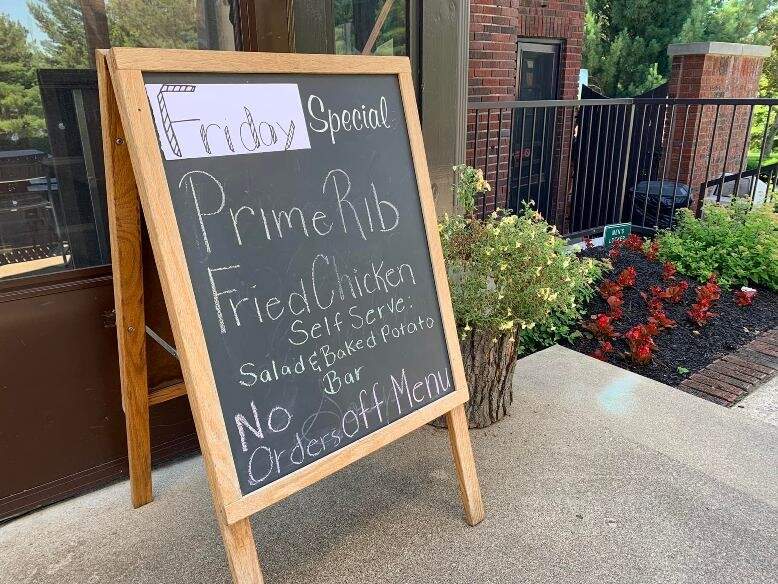 Friday Special
Prime Rib
Fried Chicken
Self Serve:
Salad & Baked Potato
Bar
No
Orders Off Menu
MEN'S
LOCKER